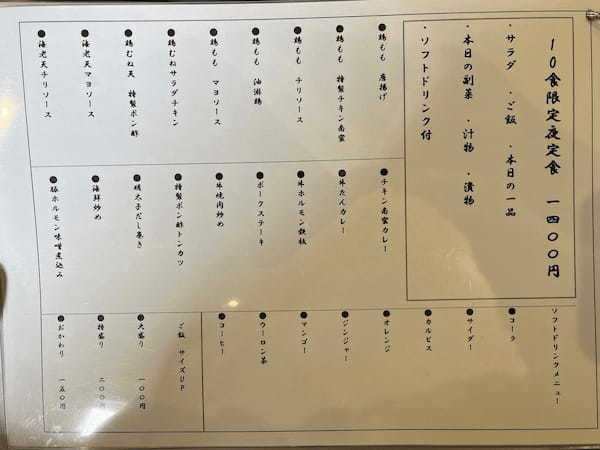 10食限定夜定食 一四〇〇円
・サラダ ・ご飯 ・本日の一品
・本日の副菜 ・汁物 ・漬物
・ソフトドリンク付
●鶏もも 唐揚げ
●鶏もも 特製チキン南蛮
●鶏もも チリソース
●鶏もも 油淋鶏
●鶏もも マヨソース
●鶏むねサラダチキン
●鶏むね天 特製ポン酢
●海老天マヨソース
●海老天チリソース
●チキン南蛮カレー
●牛たんカレー
●牛ホルモン鉄板
●ポークステーキ
●牛焼肉炒め
●特製ポン酢トンカツ
●明太子だし巻き
●海鮮炒め
●豚ホルモン味噌煮込み
ソフトドリンクメニュー
●コーラ
●サイダー
●カルピス
●オレンジ
●ジンジャー
●マンゴー
●ウーロン茶
●コーヒー
ご飯 サイズUP
●大盛り 一〇〇円
●特盛り 二〇〇円
●おかわり 一五〇円